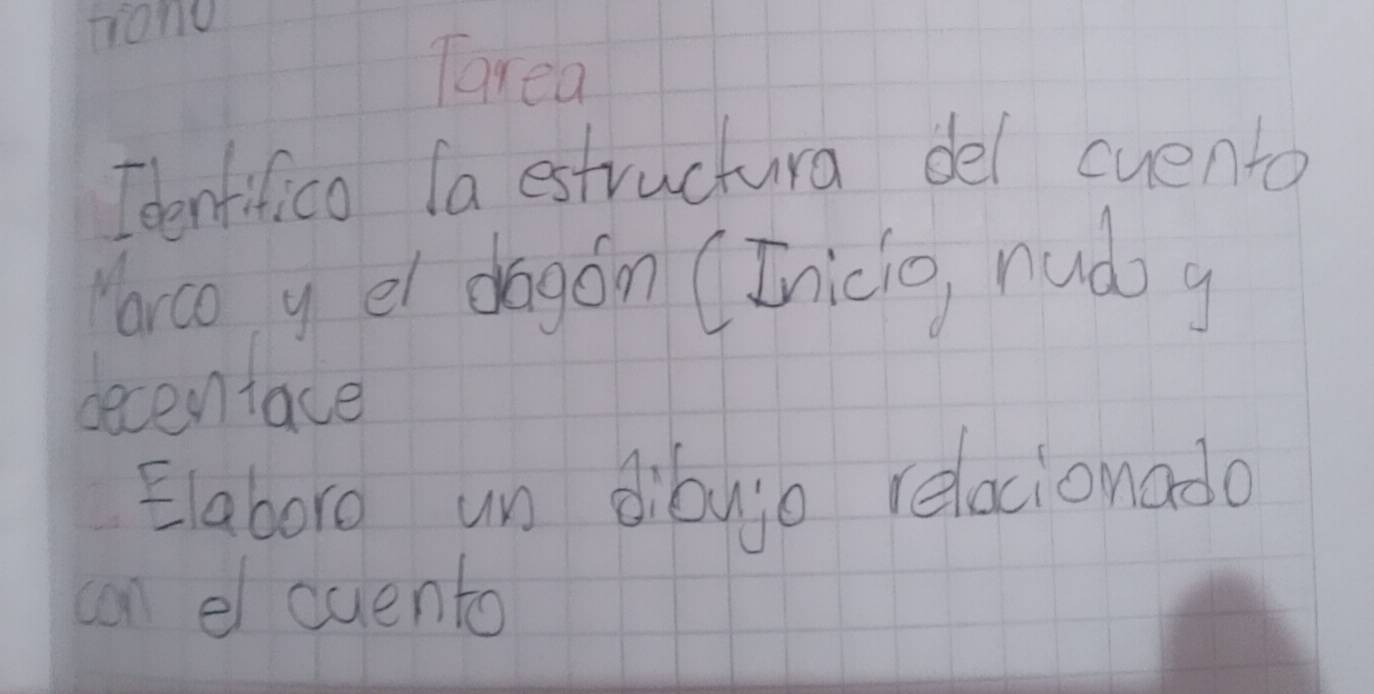 Tarea
Identifico la estructura del cuento
Marco y el dagón (Inicio, nudo y
decenlace
Elaboro un dibujo relacionado
con el cuento